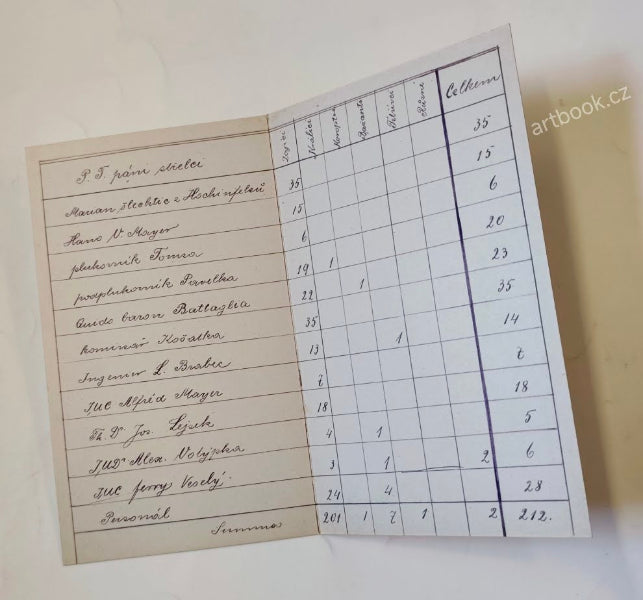 P. T. páni střelci Zajíci Králíci Koroptve Bažanti Různé Celkem
Marian šlechtic z 35 35
Hans V. Mayer 15 15
plukovník Tomsa 6 6
podplukovník Pavelka 19 1 20
Guido baron Battaglia 22 1 23
komisař Kočatka 35 35
Ingenieur L. Brabec 13 1 14
JUC Alfréd Mayer 7 7
Th. Dr Jos. Lejsek 18 18
JUDr Alex. Volýpka 4 1 5
JUC Jerry Veselý 3 1 2 6
Personál 24 4 28
Summa 201 1 7 1 2 212.
artbook.cz